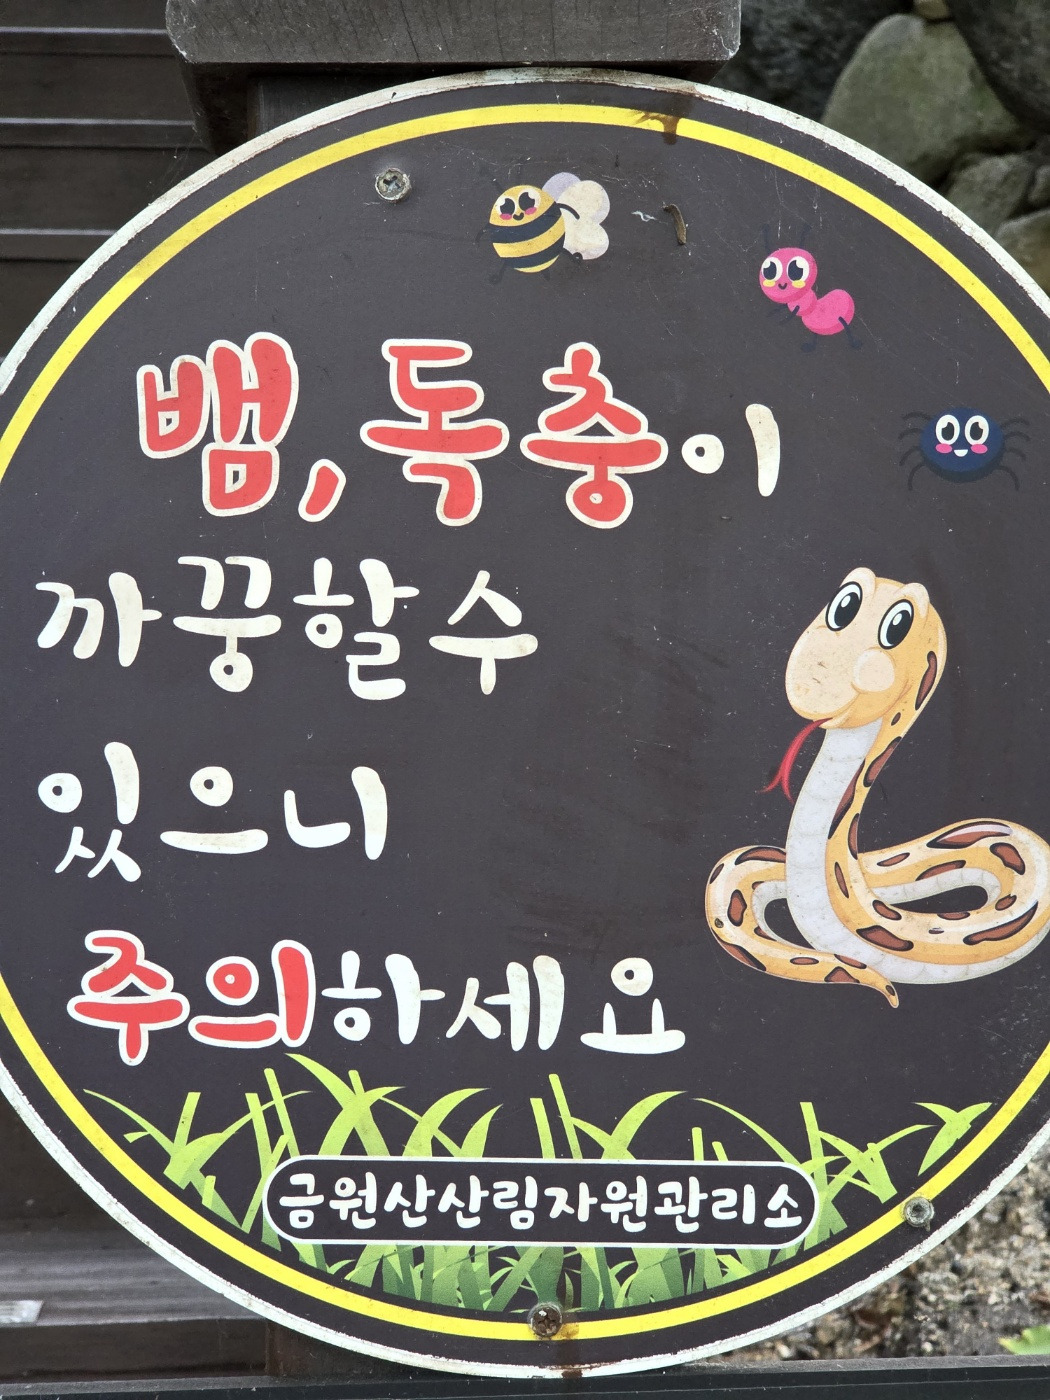 뱀,독충이
까꿍할수
있으니
주의하세요
금원산산림자원관리소